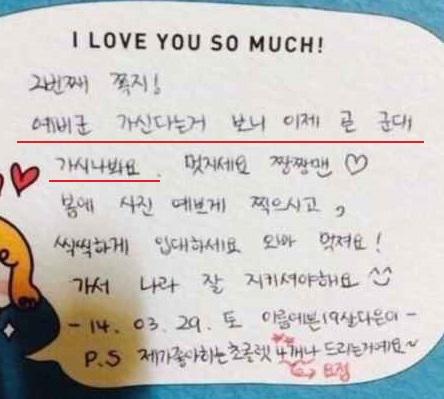 I LOVE YOU SO MUCH!
2번째 쪽지!
예비군 가신다는거 보니 이제 곧 군대
가시나봐요. 멋지세요 짱짱맨 ♡
봄에 사진 예쁘게 찍으시고,
씩씩하게 입대하세요 오빠 멋져요!
가서 나라 잘 지키셔야해요
-14. 03. 29. 토 이름예쁜19살다은이-
P.S 제가좋아하는초콜렛 4개나 드리는거예요~
요점